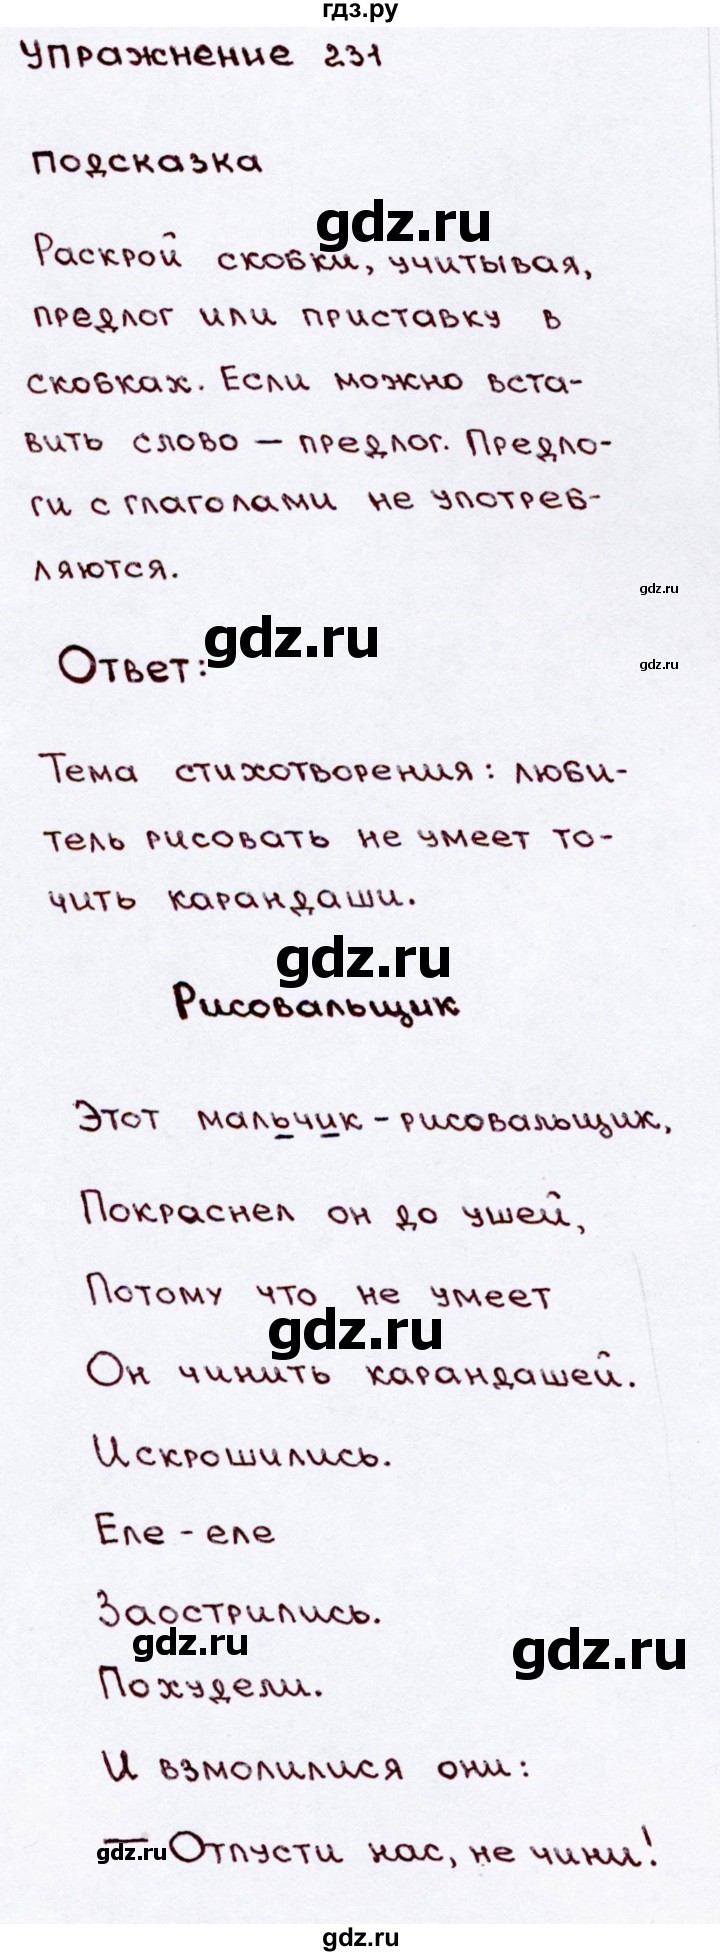 гдз.ру
Упражнение 231
подсказка
gdz.ru
Раскрой скобки, учитывая,
предлог или приставку в
скобках. Если можно вста-
вить слово — предлог. Предло-
ги с глаголами не употреб-
ляются.
gdz.ru
gdz.ru
Ответ:
gdz.ru
Тема стихотворения: люби-
тель рисовать не умеет то-
чить карандаши.
gdz.ru
Рисовальщик
Этот мальчик - рисовальщик,
Покраснел он до ушей,
Потому что не умеет
gdz.ru
Он чинить карандашей.
Искрошились.
Еле - еле
Заострились.
gdz.ru
gdz.ru
Похудели.
И взмолилися они:
gdz.ru — Отпусти нас, не чини!
gdz.ru